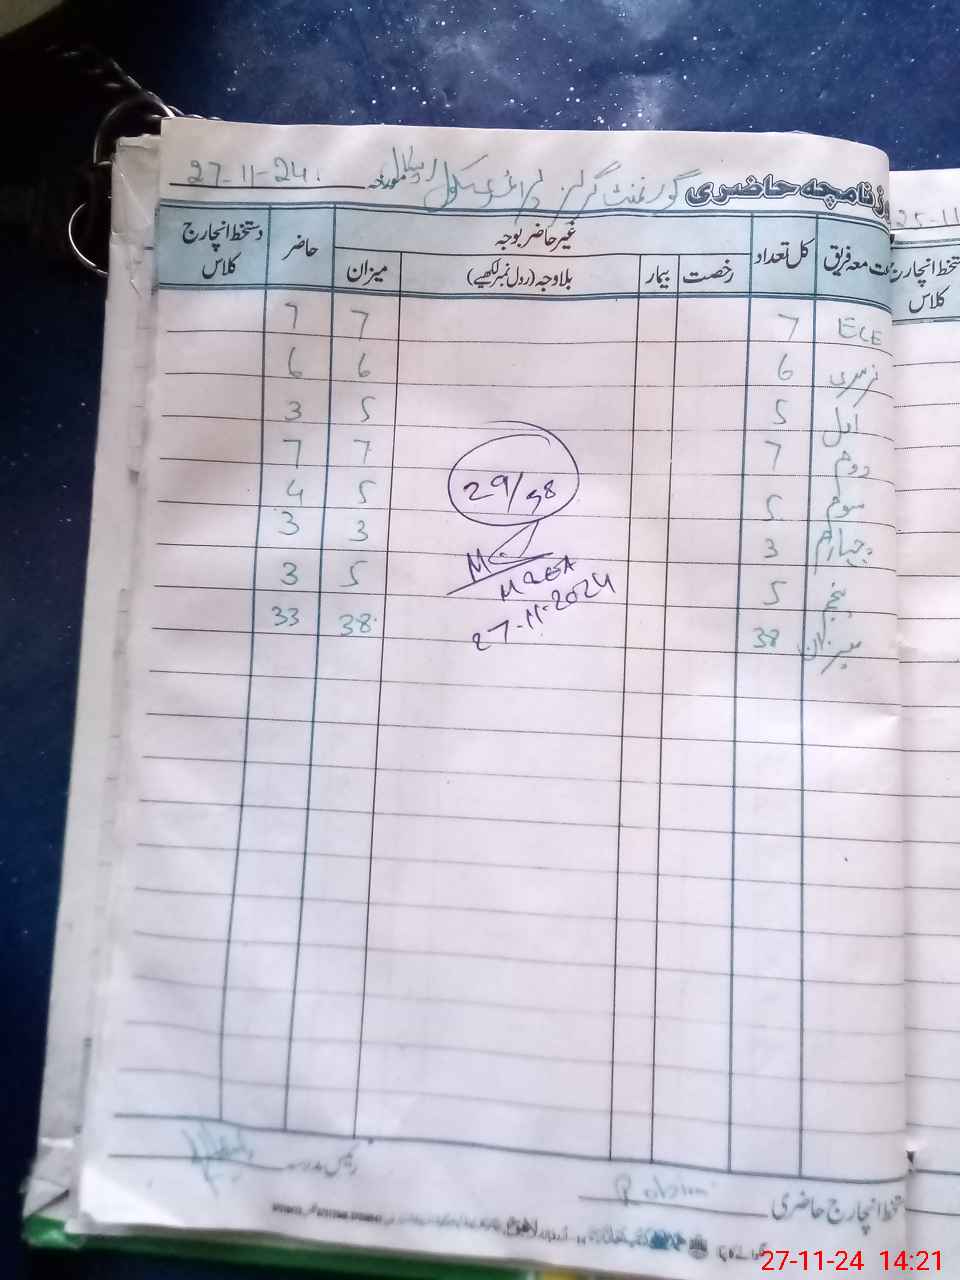 روزنامچہ حاضری گورنمنٹ گرلز پرائمری سکول مورخہ 27-11-24
جماعت معہ فریق کل تعداد غیر حاضر بوجہ حاضر دستخط انچارج کلاس
رخصت بیمار بلاوجہ (رول نمبر لکھیے) میزان
ECE 7 7 7
نرسری 6 6 6
اول 5 5 3
دوم 7 7 7
سوم 5 5 4
چہارم 3 3 3
پنجم 5 5 3
میزان 38 38 33
29/38
M&EA
27-11-2024
رئیس مدرسہ
دستخط انچارج حاضری Robina
25-11
دستخط انچارج
کلاس
27-11-24 14:21